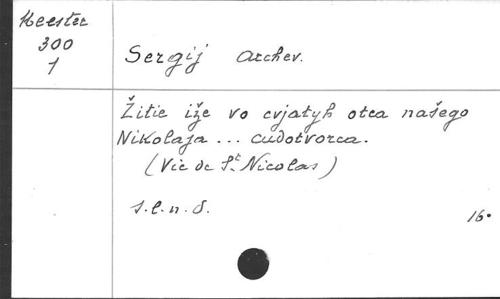 Meester
300
1
Sergij archev.
Žitie iže vo cvjatyh otca našego
Nikolaja ... cudotvorca.
(Vie de St Nicolas)
s.l.n.d.
16°